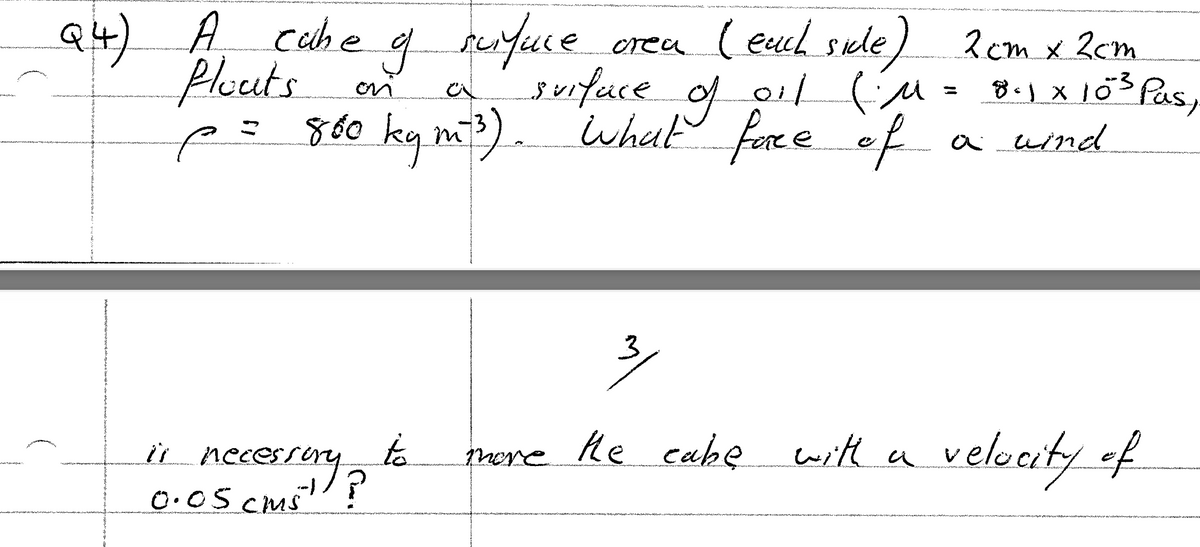 Q4) A cube of surface area (each side) 2cm x 2cm
floats on a surface of oil (μ = 8.1 x 10⁻³ Pas,
ρ = 860 kg m⁻³). What force of a wind
3/
is necessary to move the cube with a velocity of
0.05 cms⁻¹ ?